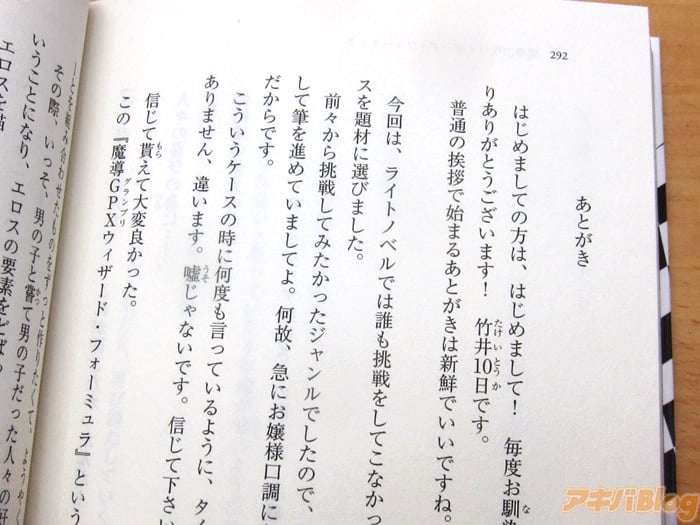 292
あとがき
はじめましての方は、はじめまして！　毎度お馴
りありがとうございます！　竹井10日です。
普通の挨拶で始まるあとがきは新鮮でいいですね。
今回は、ライトノベルでは誰も挑戦をしてこなかっ
スを題材に選びました。
前々から挑戦してみたかったジャンルでしたので、
して筆を進めていましてよ。何故、急にお嬢様口調に
だからです。
こういうケースの時に何度も言っているように、タイ
ありません、違います。嘘じゃないです。信じて下さい
信じて貰えて大変良かった。
この『魔導GPXウィザード・フォーミュラ』という
ーとを組み合わせたものをずっと作りたくて、ようやく
その際、いっそ、男の子と嘗て男の子だった人々の好
いうことになり、エロスの要素をどば
エロスを描
アキバBlog